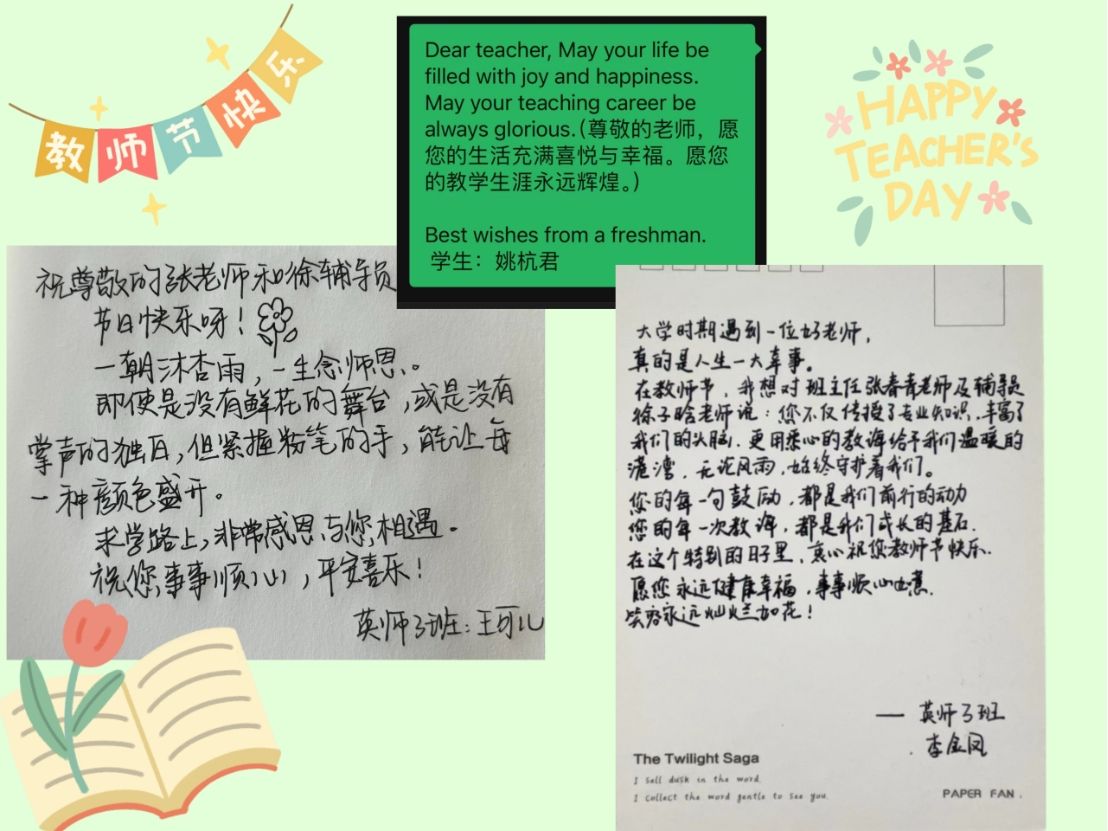 教师节快乐
Dear teacher, May your life be
filled with joy and happiness.
May your teaching career be
always glorious.(尊敬的老师，愿
您的生活充满喜悦与幸福。愿您
的教学生涯永远辉煌。)
Best wishes from a freshman.
学生：姚杭君
HAPPY
TEACHER'S
DAY
祝尊敬的张老师和徐辅导员
节日快乐呀！
一朝沐杏雨，一生念师恩。
即使是没有鲜花的舞台，或是没有
掌声的独白，但紧握粉笔的手，能让每
一种颜色盛开。
求学路上，非常感恩与您相遇。
祝您事事顺心，平安喜乐！
英师3班：王可儿
大学时期遇到一位好老师，
真的是人生一大幸事。
在教师节，我想对班主任张春青老师及辅导员
徐子晗老师说：您不仅传授了专业知识，丰富了
我们的头脑，更用悉心的教诲给予我们温暖的
港湾，无论风雨，始终守护着我们。
您的每一句鼓励，都是我们前行的动力
您的每一次教诲，都是我们成长的基石.
在这个特别的日子里，衷心祝您教师节快乐.
愿您永远健康幸福，事事顺心如意.
笑容永远灿烂如花！
— 英师3班
李金凤
The Twilight Saga
I sell dusk in the word.
I collect the word gentle to see you.
PAPER FAN.